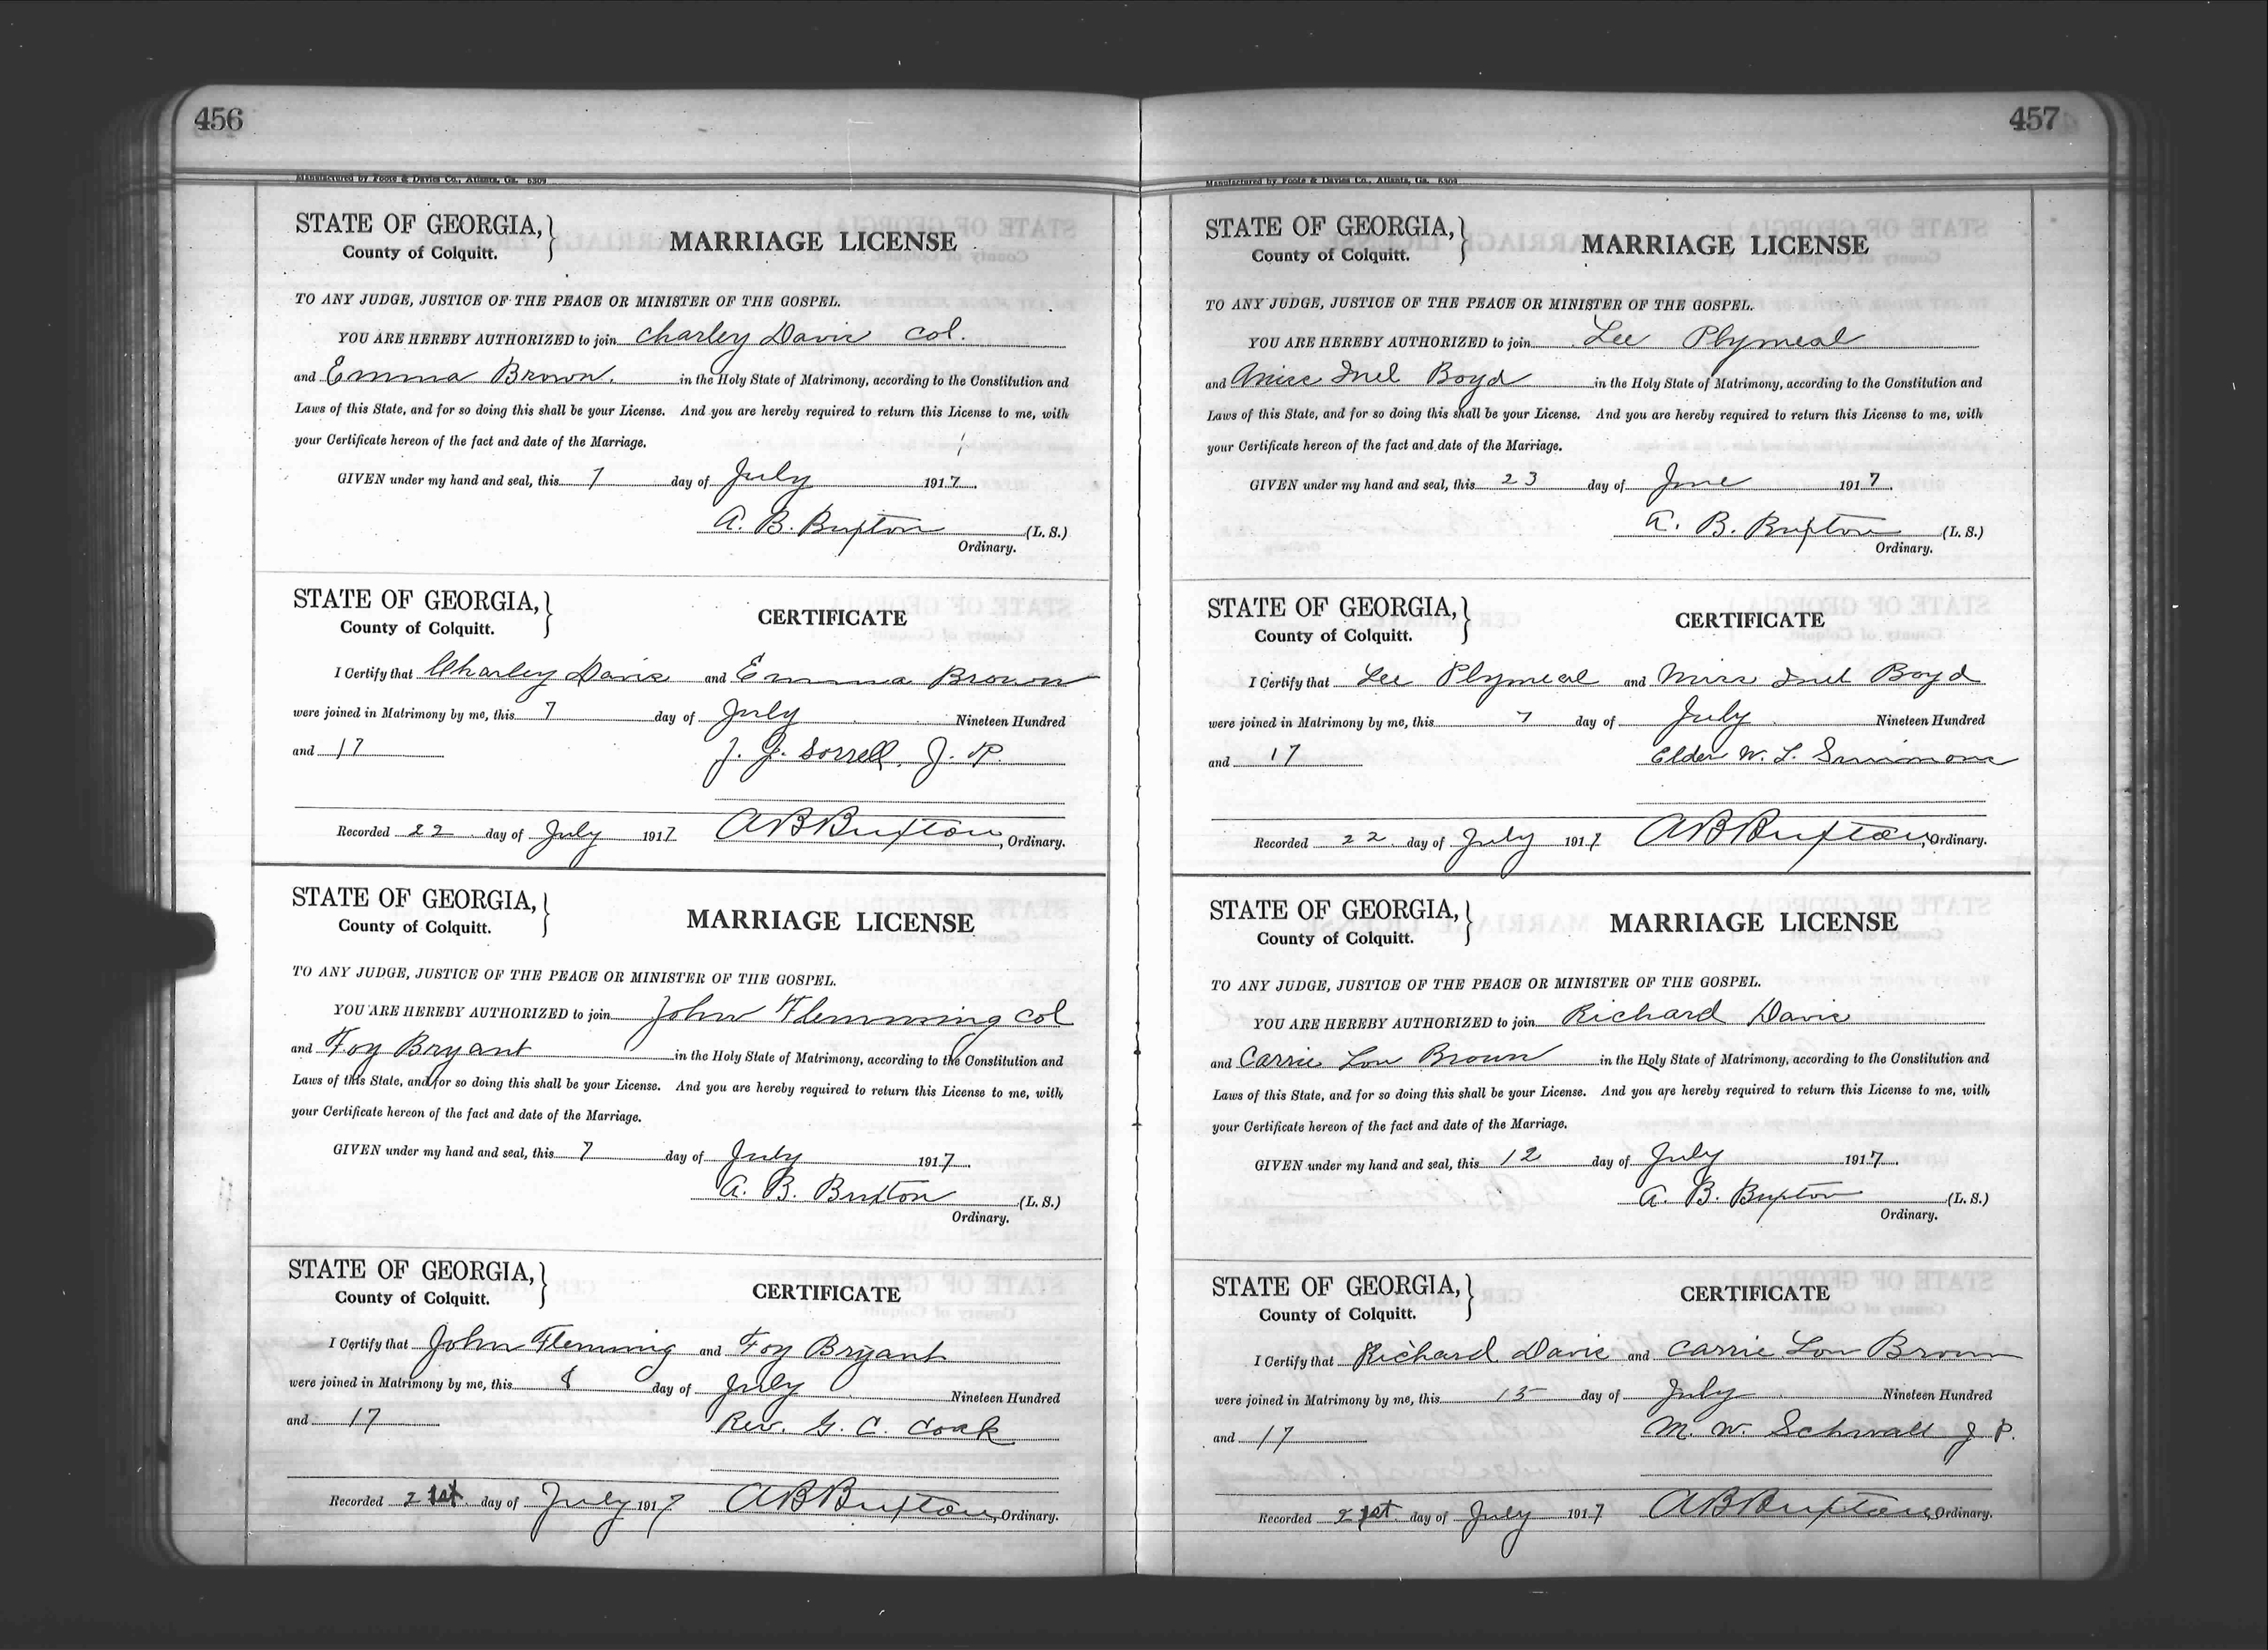 456
Manufactured by Foote & Davies Co., Atlanta, Ga. 5309
STATE OF GEORGIA,
County of Colquitt.
MARRIAGE LICENSE
TO ANY JUDGE, JUSTICE OF THE PEACE OR MINISTER OF THE GOSPEL.
YOU ARE HEREBY AUTHORIZED to join Charley Davis Col.
and Emma Brown. in the Holy State of Matrimony, according to the Constitution and
Laws of this State, and for so doing this shall be your License. And you are hereby required to return this License to me, with
your Certificate hereon of the fact and date of the Marriage.
GIVEN under my hand and seal, this 7 day of July 1917.
A. B. Buxton (L. S.)
Ordinary.
STATE OF GEORGIA,
County of Colquitt.
CERTIFICATE
I Certify that Charley Davis and Emma Brown
were joined in Matrimony by me, this 7 day of July Nineteen Hundred
and 17 J. J. Sorrell, J. P.
Recorded 22 day of July 1917 A B Buxton, Ordinary.
STATE OF GEORGIA,
County of Colquitt.
MARRIAGE LICENSE
TO ANY JUDGE, JUSTICE OF THE PEACE OR MINISTER OF THE GOSPEL.
YOU ARE HEREBY AUTHORIZED to join John Flemming Col
and Foy Bryant in the Holy State of Matrimony, according to the Constitution and
Laws of this State, and for so doing this shall be your License. And you are hereby required to return this License to me, with,
your Certificate hereon of the fact and date of the Marriage.
GIVEN under my hand and seal, this 7 day of July 1917.
A. B. Buxton (L. S.)
Ordinary.
STATE OF GEORGIA,
County of Colquitt.
CERTIFICATE
I Certify that John Flemming and Foy Bryant
were joined in Matrimony by me, this 8 day of July Nineteen Hundred
and 17 Rev. G. C. Cook
Recorded 21st day of July 1917 A B Buxton, Ordinary.
457
Manufactured by Foote & Davies Co., Atlanta, Ga. 5309
STATE OF GEORGIA,
County of Colquitt.
MARRIAGE LICENSE
TO ANY JUDGE, JUSTICE OF THE PEACE OR MINISTER OF THE GOSPEL.
YOU ARE HEREBY AUTHORIZED to join Lee Plymeal
and Miss Inel Boyd in the Holy State of Matrimony, according to the Constitution and
Laws of this State, and for so doing this shall be your License. And you are hereby required to return this License to me, with
your Certificate hereon of the fact and date of the Marriage.
GIVEN under my hand and seal, this 23 day of June 1917.
A. B. Buxton (L. S.)
Ordinary.
STATE OF GEORGIA,
County of Colquitt.
CERTIFICATE
I Certify that Lee Plymeal and Miss Inel Boyd
were joined in Matrimony by me, this 7 day of July Nineteen Hundred
and 17 Elder W. L. Simmons
Recorded 22. day of July 1917 A B Buxton, Ordinary.
STATE OF GEORGIA,
County of Colquitt.
MARRIAGE LICENSE
TO ANY JUDGE, JUSTICE OF THE PEACE OR MINISTER OF THE GOSPEL.
YOU ARE HEREBY AUTHORIZED to join Richard Davis
and Carrie Lou Brown in the Holy State of Matrimony, according to the Constitution and
Laws of this State, and for so doing this shall be your License. And you are hereby required to return this License to me, with,
your Certificate hereon of the fact and date of the Marriage.
GIVEN under my hand and seal, this 12 day of July 1917.
A. B. Buxton (L. S.)
Ordinary.
STATE OF GEORGIA,
County of Colquitt.
CERTIFICATE
I Certify that Richard Davis and Carrie Lou Brown
were joined in Matrimony by me, this 15 day of July Nineteen Hundred
and 17 M. W. Schwall J P.
Recorded 21st. day of July 1917 A B Buxton, Ordinary.